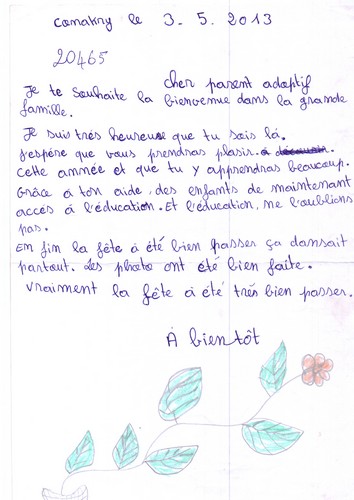 conakry le 3.5.2013
20465
cher parent adoptif
Je te souhaite la bienvenue dans la grande
famille.
Je suis très heureuse que tu sois là.
J'espère que vous prendras plaisir. à
cette année et que tu y apprendras beaucoup.
Grâce à ton aide, des enfants de maintenant
accès à l'éducation. Et l'éducation, ne l'oublions
pas.
En fin la fête à été bien passer ça dansait
partout. Les photo ont été bien faite.
vraiment la fête à été très bien passer.
À bientôt